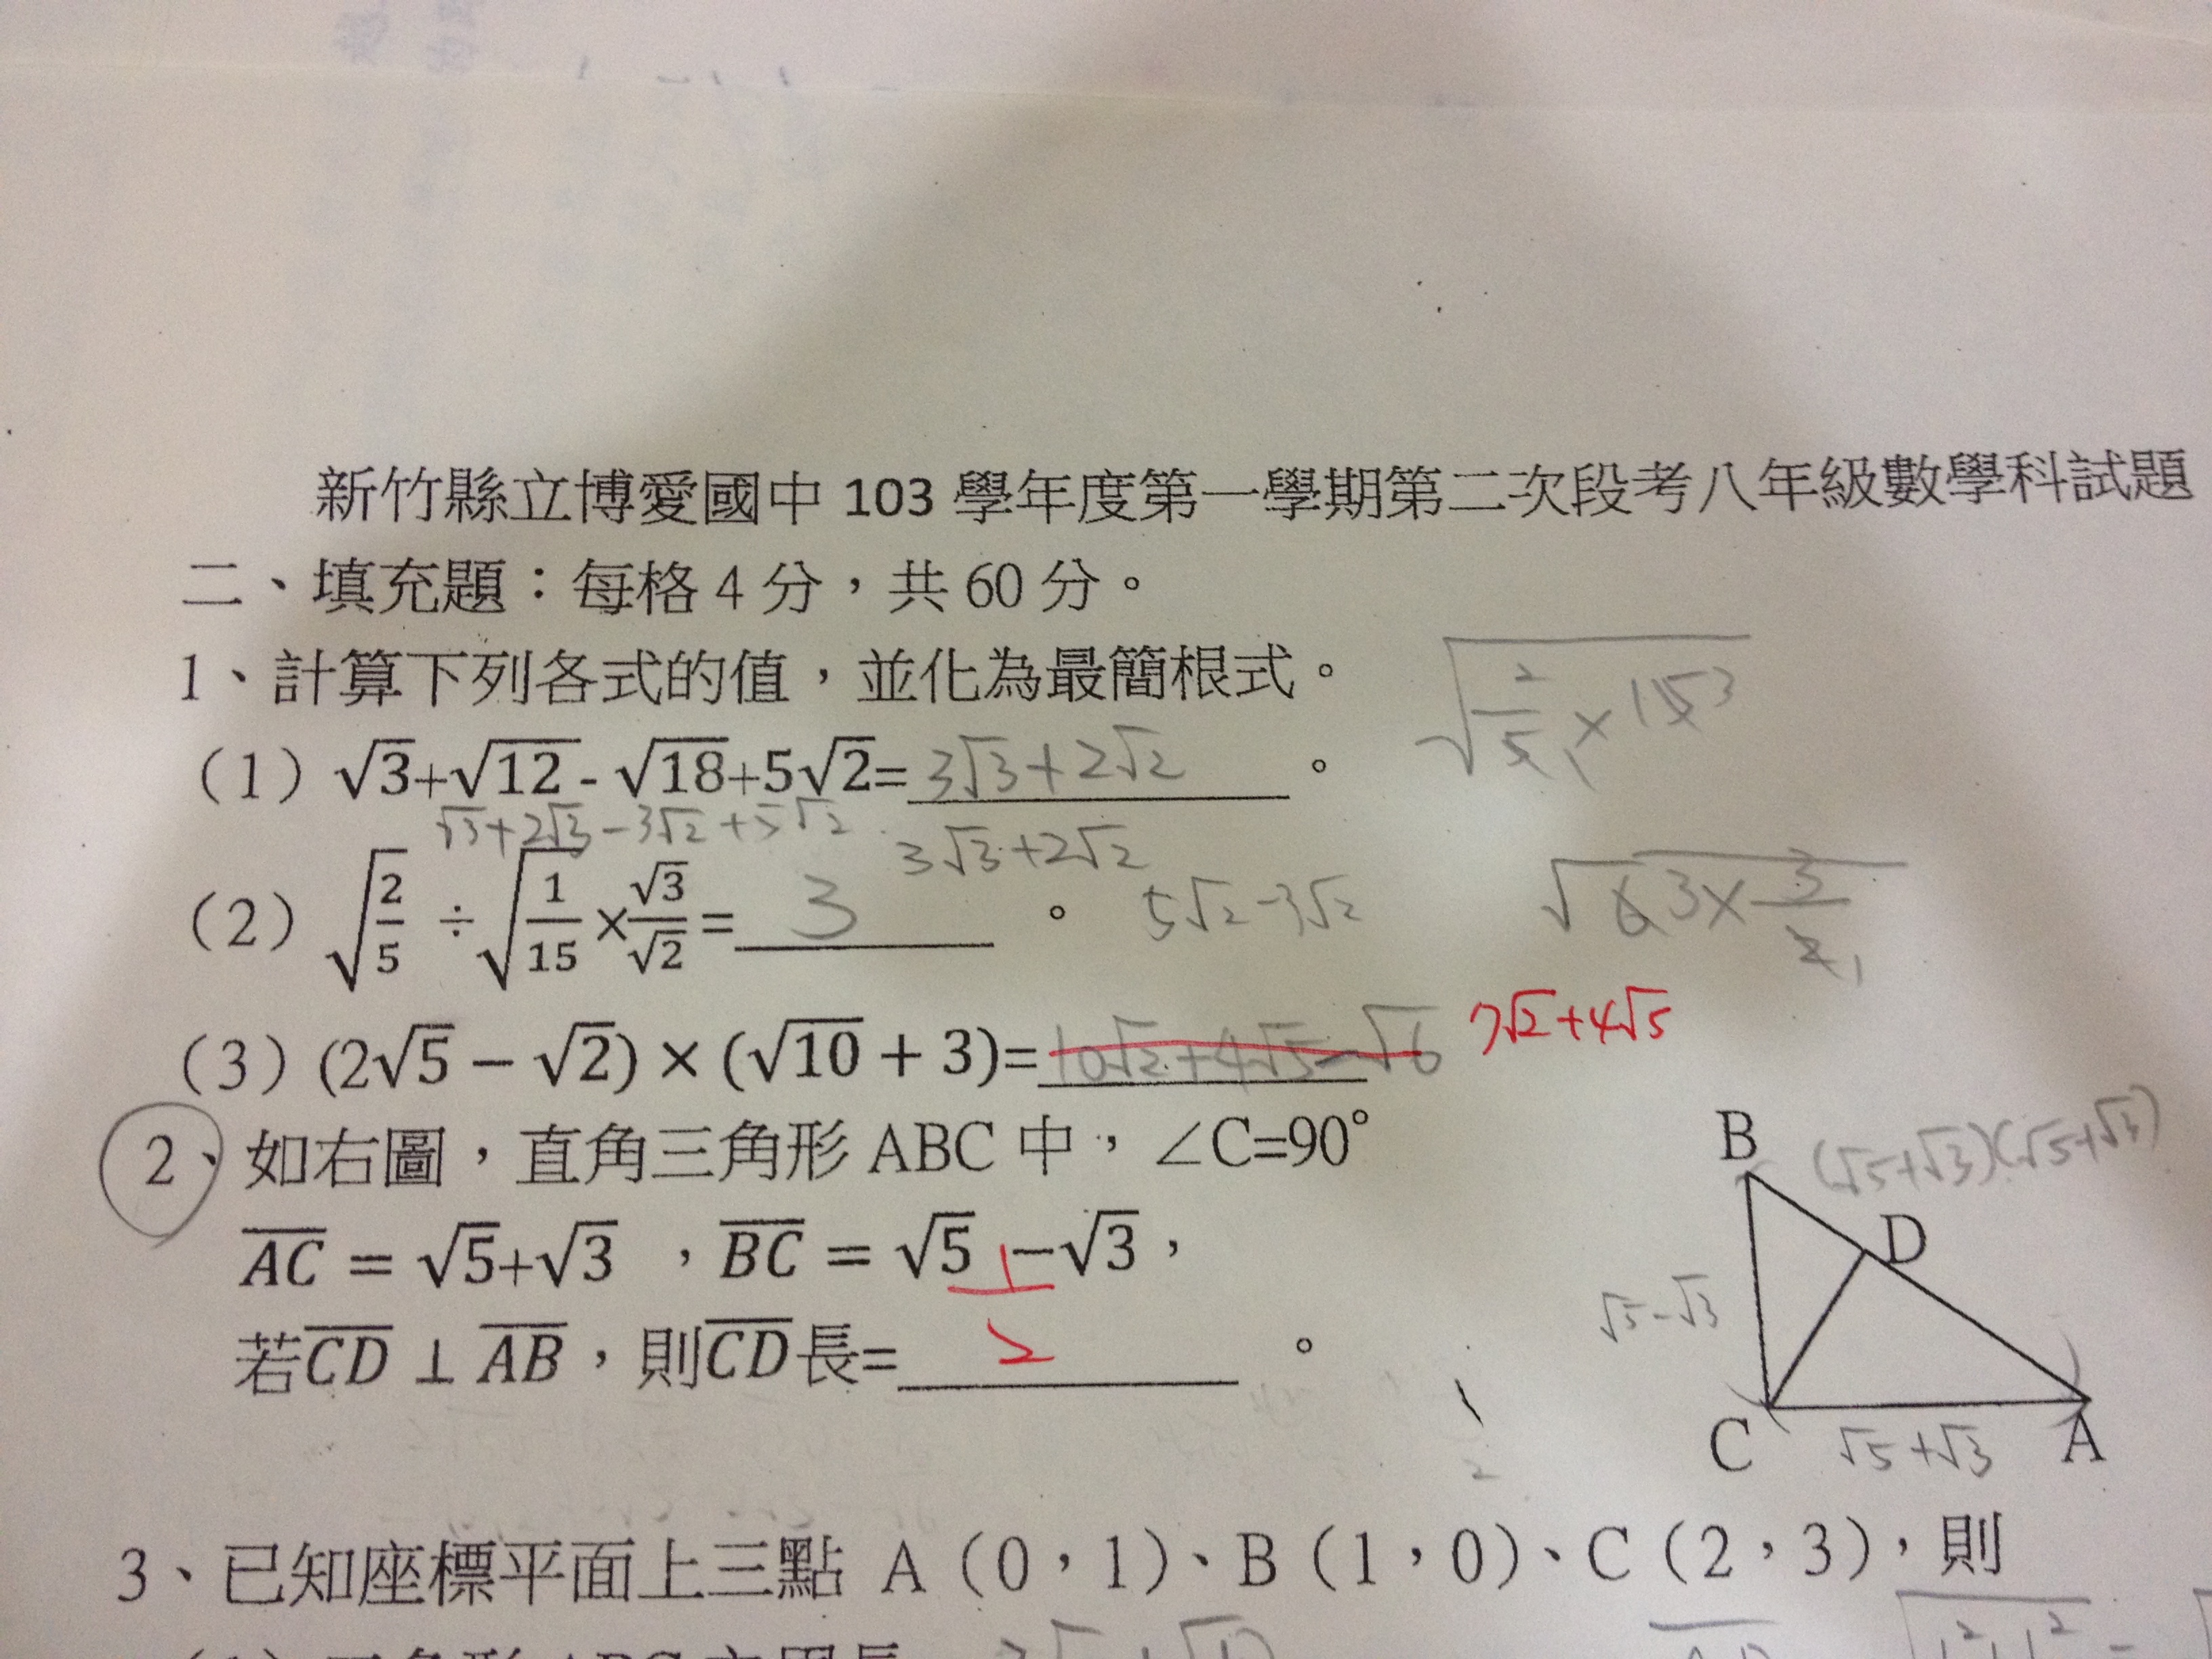 新竹縣立博愛國中 103 學年度第一學期第二次段考八年級數學科試題
二、填充題：每格 4 分，共 60 分。
1、計算下列各式的值，並化為最簡根式。
√2/5₁ × 15 3
（1）√3+√12-√18+5√2=3√3+2√2。
√3+2√3-3√2+5√2
3√3+2√2
（2）√(2/5) ÷ √(1/15) × √3/√2 = 3。
5√2-3√2
√6 3 × 3/2 1
（3）(2√5 − √2) × (√10 + 3)=10√2+4√5-√6
7√2+4√5
2、如右圖，直角三角形 ABC 中，∠C=90°
AC = √5+√3 ，BC = √5 −√3，
若CD ⊥ AB，則CD長= 1/2 。
B
(√5+√3)(√5+√3)
D
√5-√3
C
√5+√3
A
1
2
3、已知座標平面上三點 A（0，1）、B（1，0）、C（2，3），則